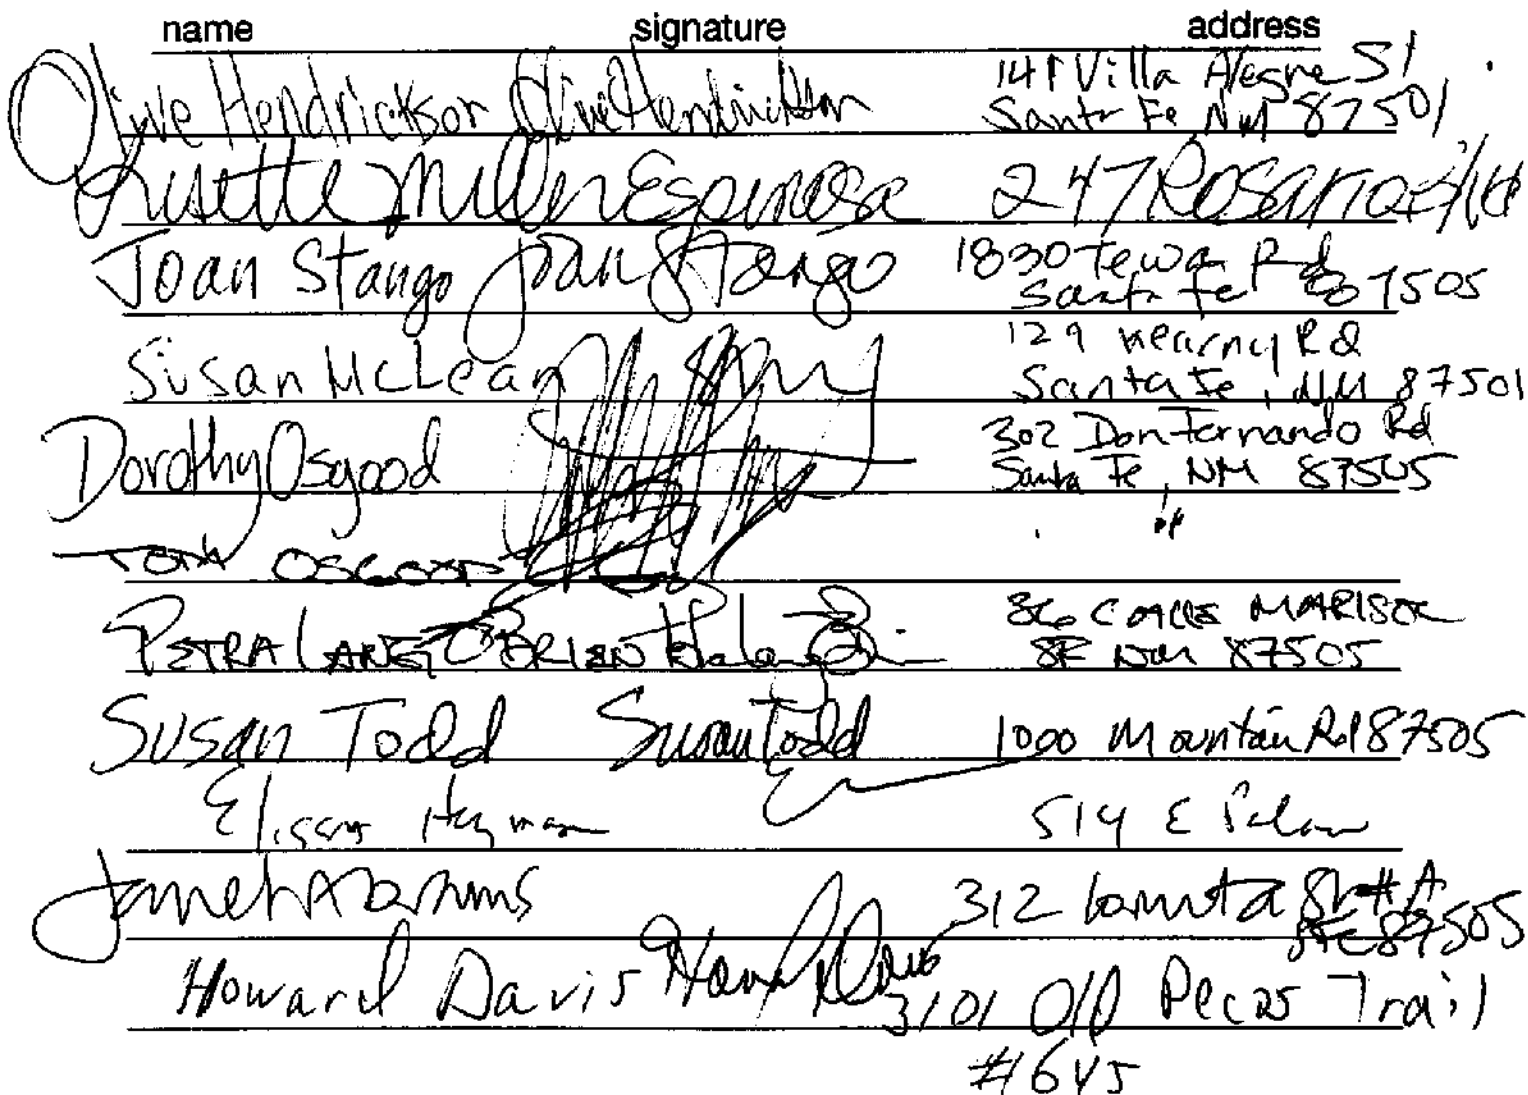 name signature address
Olive Hendrickson Olive Hendrickson 141 Villa Alegre St
Santa Fe, NM 87501
Lisette Miller Espinosa 247 Rosario
Joan Stango Joan Stango 1830 Tewa Rd
Santa Fe 87505
Susan McLean 129 Kearny Rd
Santa Fe, NM 87501
Dorothy Osgood 302 Don Fernando Rd
Santa Fe, NM 87505
Tom Osgood "
PETRA LANG O'BRIEN 36 CALLE MARISOL
SF NM 87505
Susan Todd Susan Todd 1000 Mountain Rd 87505
Elissa Heyman 514 E Palace
Janet Abrams 312 #A
87505
Howard Davis Howard Davis
3101 Old Pecos Trail
#645